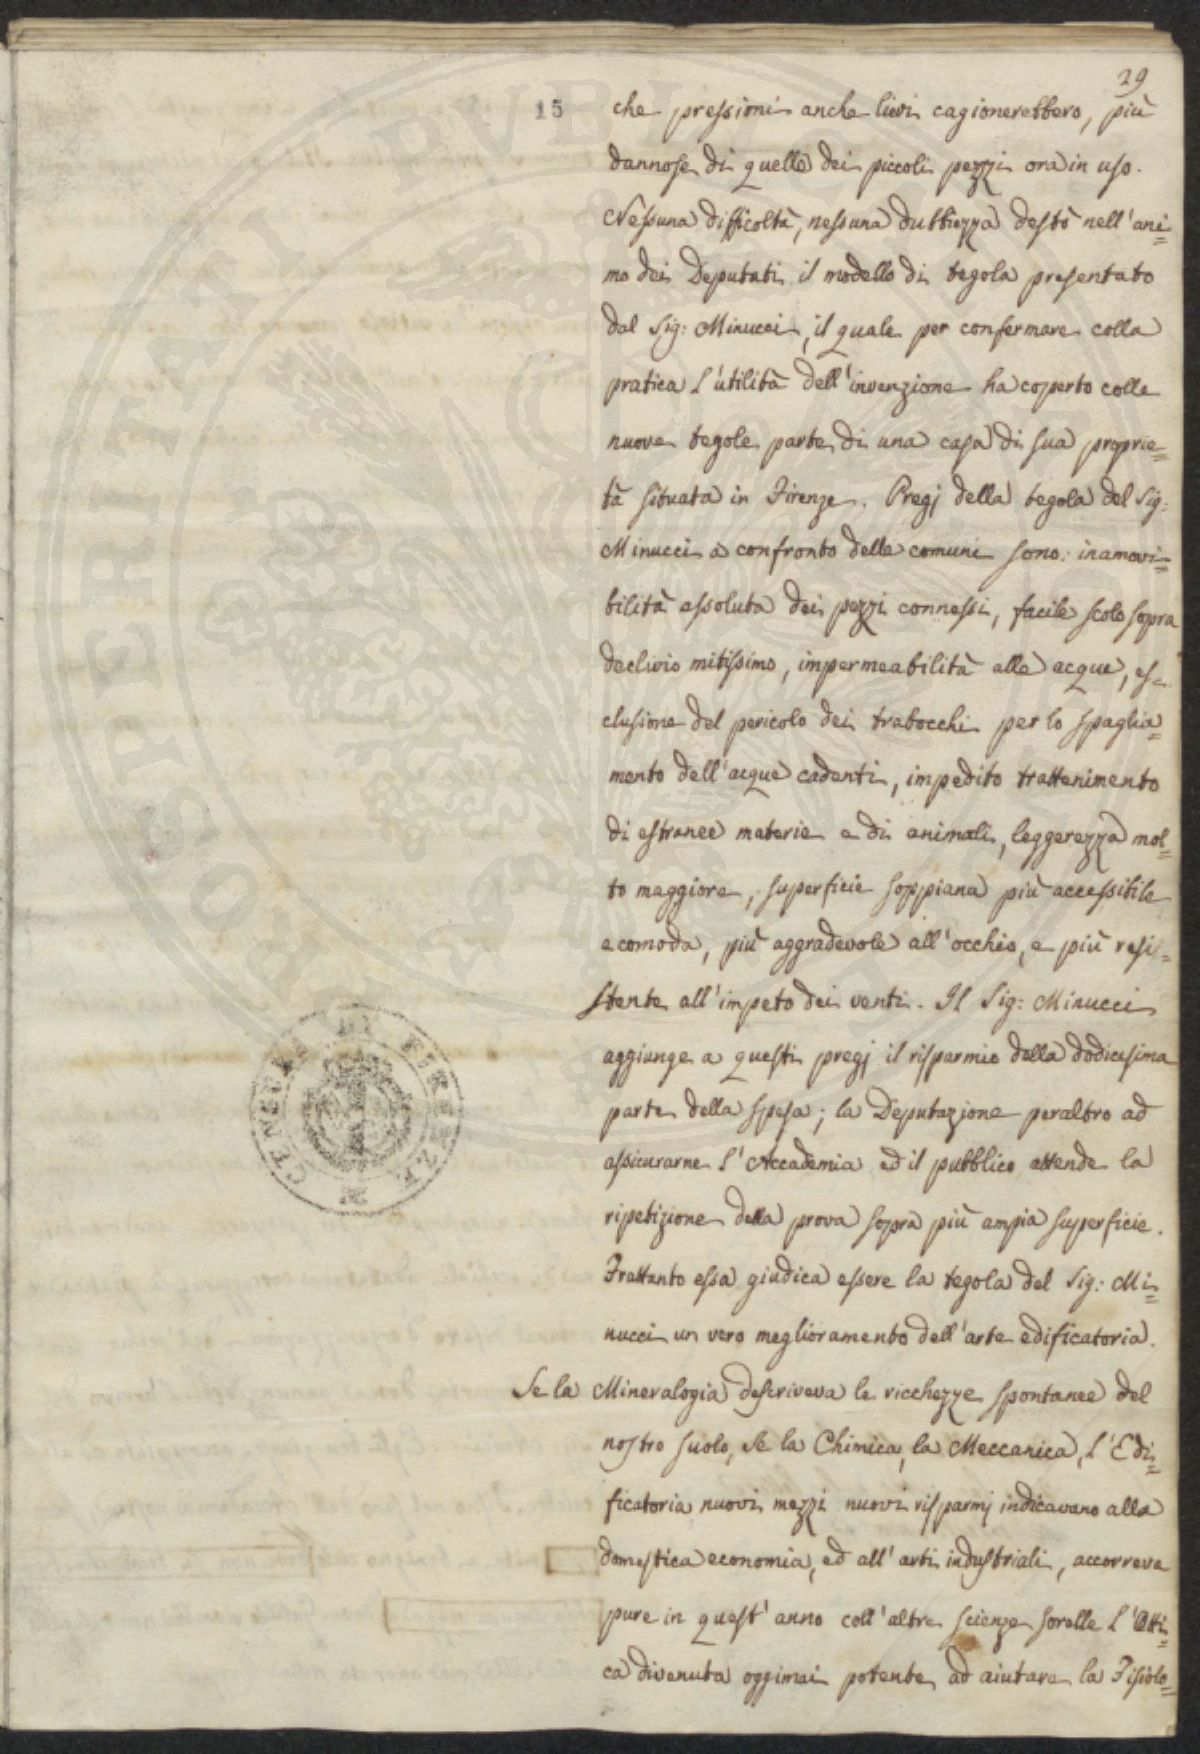 29
15
che pressioni anche lievi cagionerebbero, più
dannose di quelle dei piccoli pezzi ora in uso.
Nessuna difficoltà, nessuna dubbiezza destò nell'ani=
mo dei Deputati il modello di tegola presentato
dal Sig: Minucci, il quale per confermare colla
pratica l'utilità dell'invenzione ha coperto colle
nuove tegole parte di una casa di sua proprie=
tà situata in Firenze. Pregj della tegola del Sig:
Minucci a confronto delle comuni sono: inamovi=
bilità assoluta dei pezzi connessi, facile scolo sopra
declivio mitissimo, impermeabilità alle acque, es=
clusione del pericolo dei trabocchi per lo spaglia=
mento dell'acque cadenti, impedito trattenimento
di estranee materie e di animali, leggerezza mol=
to maggiore, superficie soppiana più accessibile
e comoda, più aggradevole all'occhio, e più resi=
stente all'impeto dei venti. Il Sig: Minucci
aggiunge a questi pregj il risparmio della dodicesima
parte della spesa; la Deputazione peraltro ad
assicurarne l'Accademia ed il pubblico attende la
ripetizione della prova sopra più ampia superficie.
Frattanto essa giudica essere la tegola del Sig: Mi=
nucci un vero meglioramento dell'arte edificatoria.
Se la Mineralogia descriveva le ricchezze spontanee del
nostro suolo, se la Chimica, la Meccanica, l'Edi=
ficatoria nuovi mezzi nuovi risparmj indicavano alla
domestica economia, ed all'arti industriali, accorreva
pure in quest'anno coll'altre scienze sorelle l'Otti=
ca divenuta oggimai potente ad aiutare la Fisiolo=
CENSURA DI FIRENZE
PUBLICAE
PROSPERITATI